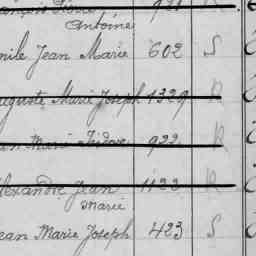 Antoine
mile Jean Marie 602 S
uguste Marie Joseph 1329 R
an Marie Isidore 922 R
lexandre Jean 1122 R
Marie
ean Marie Joseph 423 S